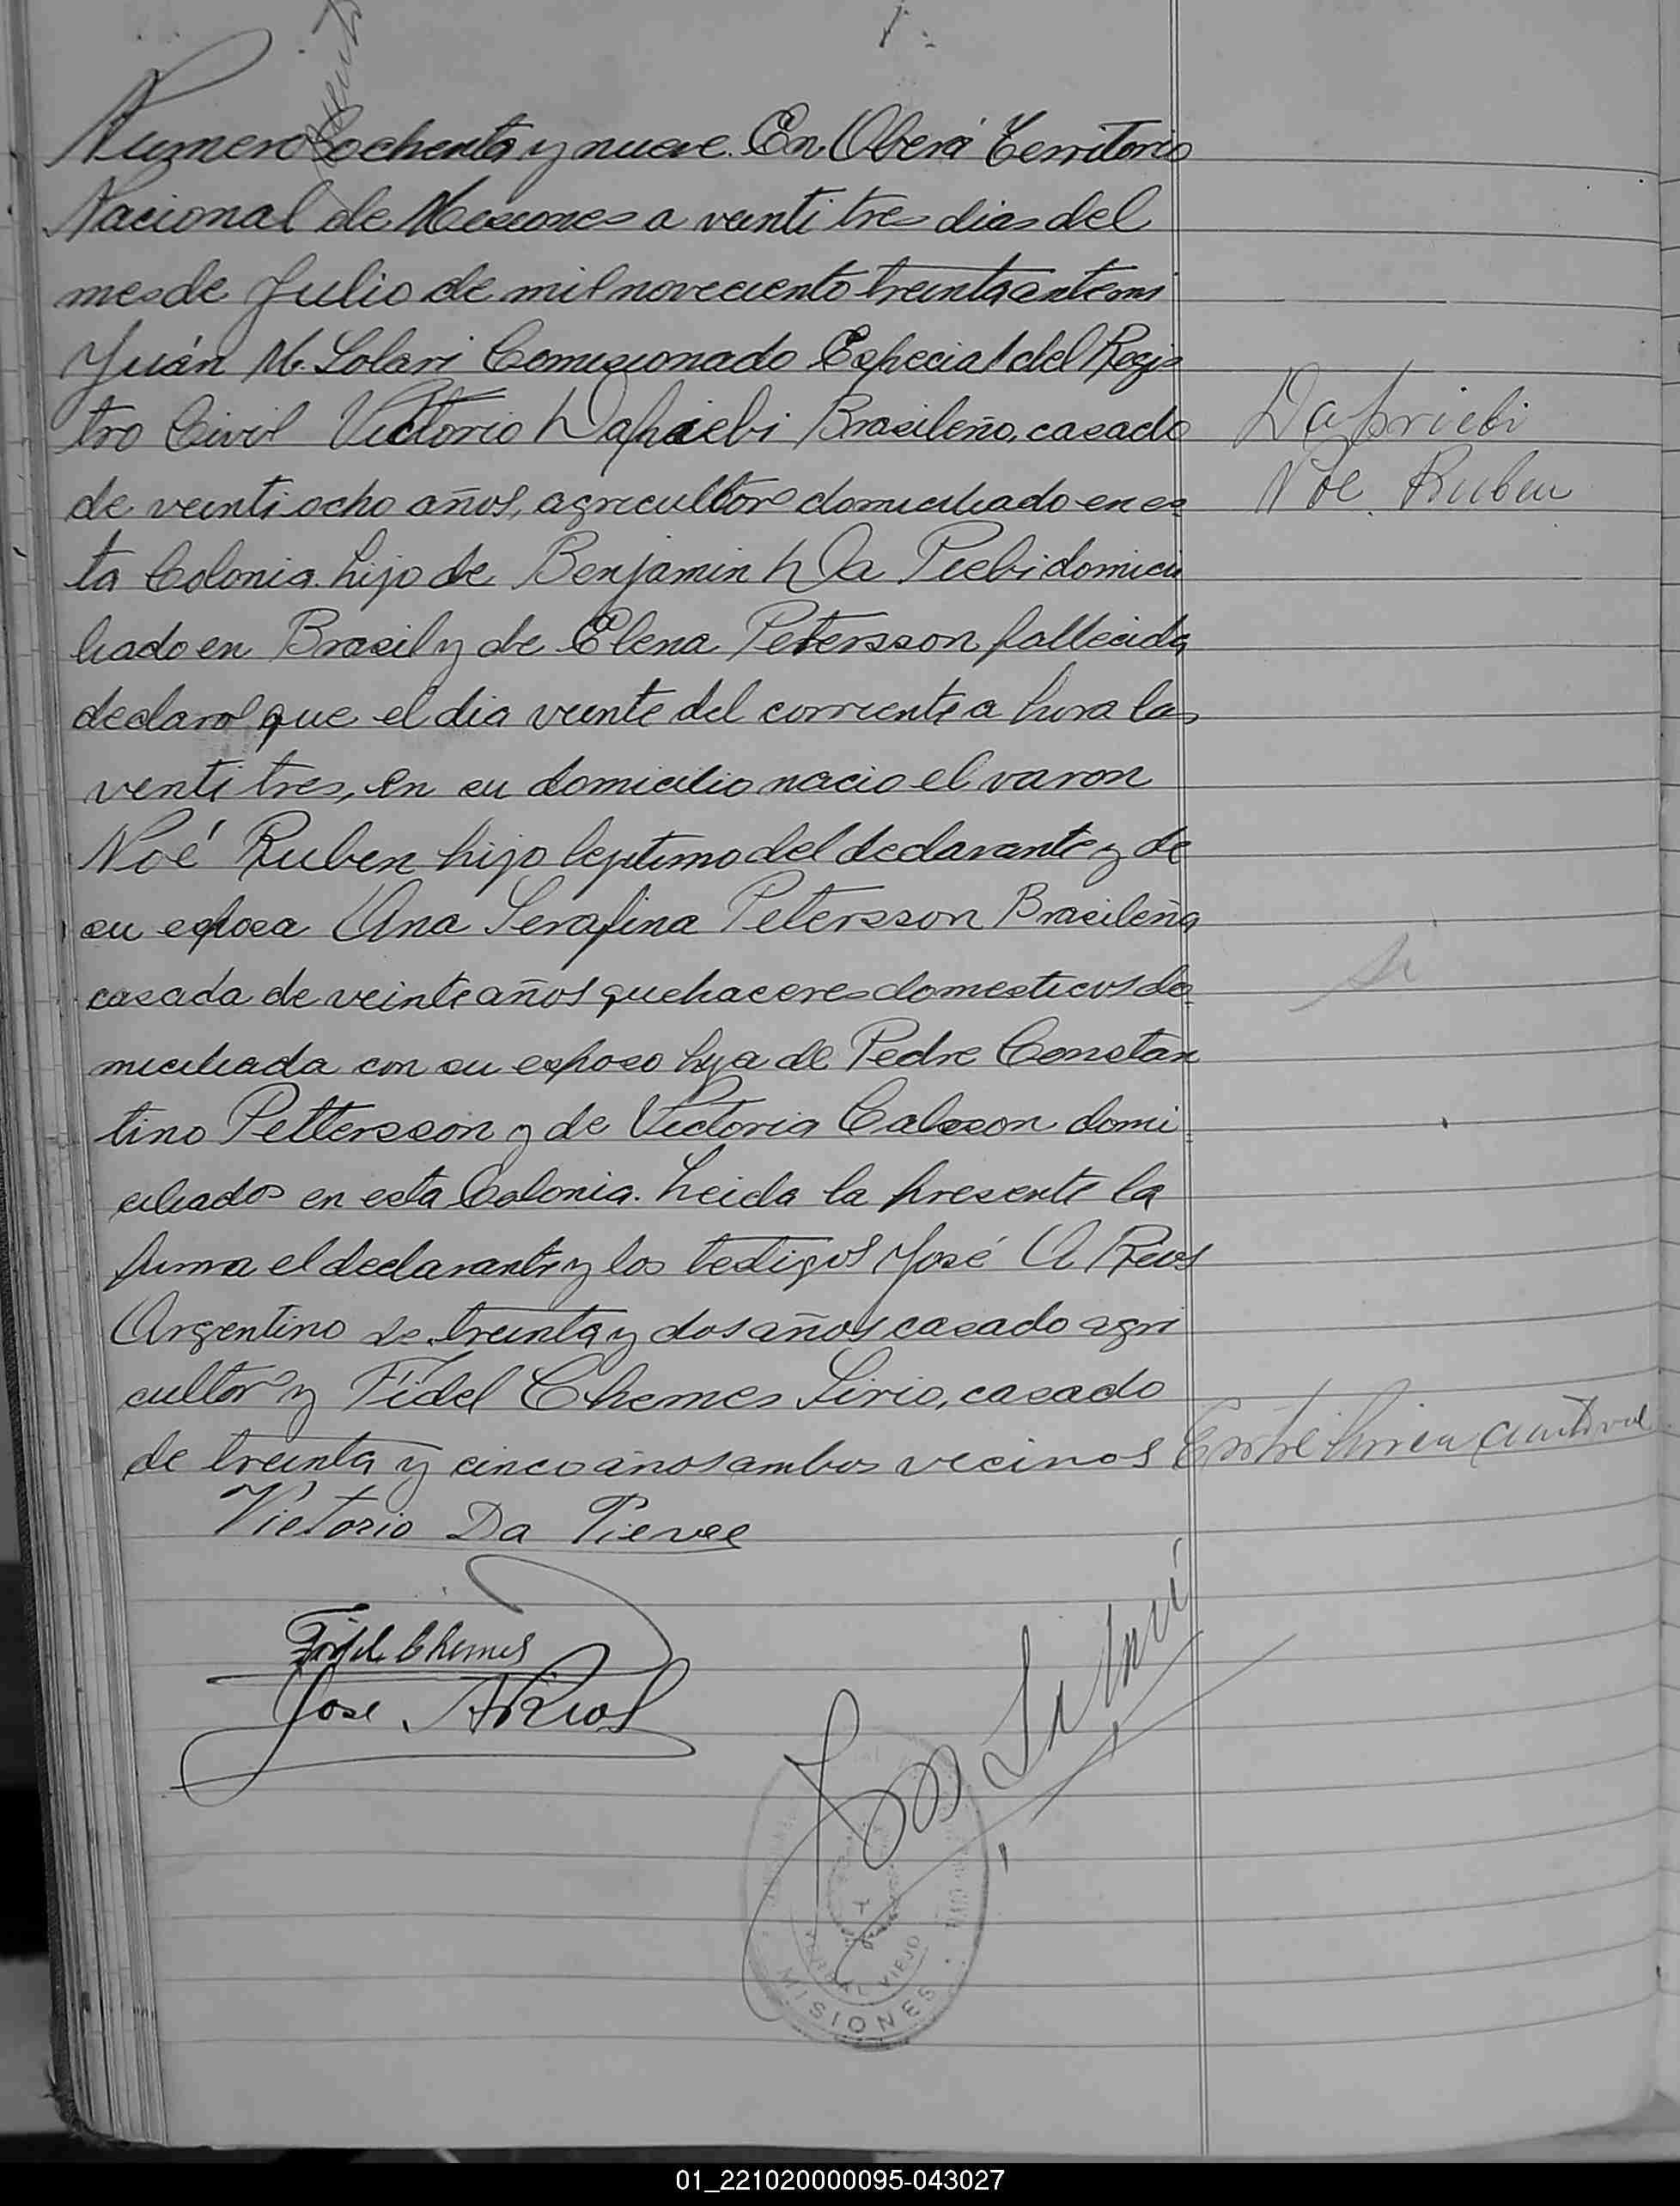 Numero ochenta y nueve. En Oberá Territorio
Nacional de Misiones a veinti tres dias del
mes de Julio de mil noveciento treinta ante mi
Juán M. Solari Comisionado Especial del Regis
tro Civil Victorio Dapiebi Brasileño, casado
de veintiocho años, agricultor domiciliado en es
ta Colonia. hijo de Benjamin Da Piebi domici
liado en Brasil y de Elena Petersson fallecida
declaro que el dia veinte del corriente a hora las
venti tres, en su domicilio nacio el varon
Noé Ruben hijo legitimo del declarante y de
su esposa Ana Serafina Petersson Brasileña
casada de veinte años quehaceres domesticos do
miciliada con su esposo hija de Pedre Constan
tino Pettersson y de Victoria Calsson domi
ciliados en esta Colonia. Leida la presente la
firma el declarante y los testigos José A Rios
Argentino de treinta y dos años casado agri
cultor y Fidel Chemes Sirio, casado
de treinta y cinco años ambos vecinos
Victorio Da Pieve
Fidel Chemes
Jose A Rios
YERBAL VIEJO
MISIONES
Dapriebi
Noe Ruben
si
01_221020000095-043027